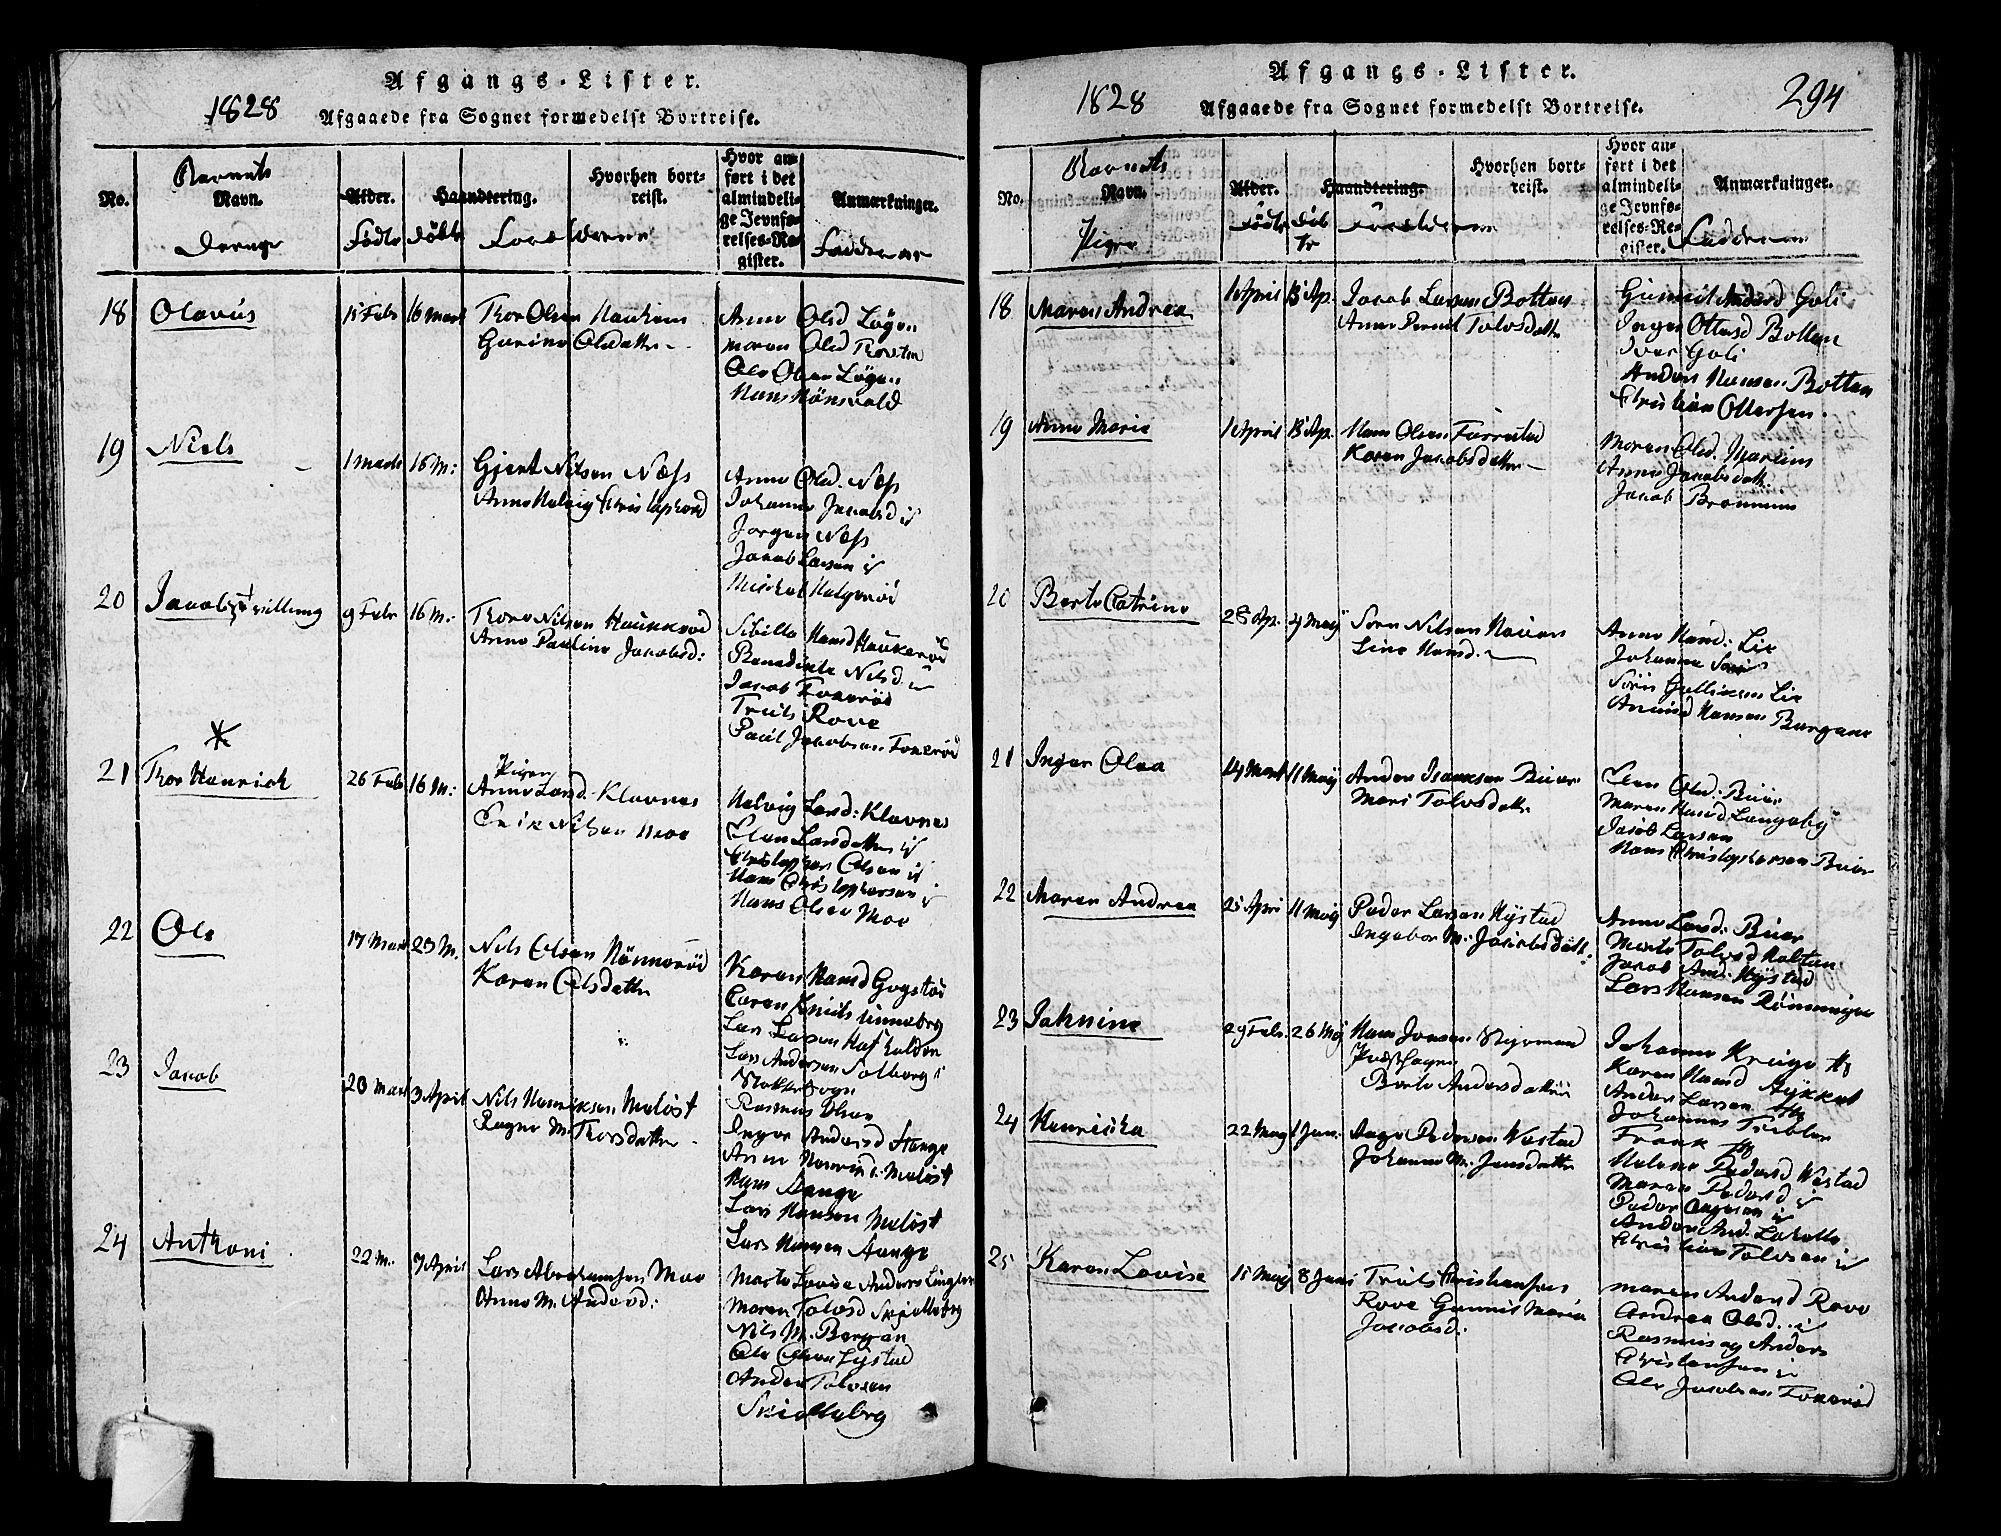 Afgangs-Lister.
1828
Afgaaede fra Sognet formedelst Bortreise.
No.
Barnets
Navn.
Drenge
Alder.
Födte
Döbte
Haandtering.
Hvorhen bort-
reist.
Forældrene
Hvor an-
ført i det
almindeli-
ge Jevnfø-
relses-Re-
gister.
Anmærkninger.
Fadderne
18 Olavus 15 Febr 16 Mart Thor Olsen
Olsdatter
Anne Olsd Løgen
Maren Olsd
Ole Olsen Løgen
Hans Mönsvold
19 Niels 1 Marts 16 M: Gjert Nilsen Næss
Anne Helvig Christophersd
Anne Olsd. Næss
Johanne Jacobsd
Jørgen Næss
Jacob Larsen
Michal
20 Jacob tvilling 9 Febr 16 M: Thore Nilsen Haukerød
Anne Pauline Jacobsd:
Sibille Hansd Haukerød
Benedicte Nilsd.
Jacob Fokerød
Truls Rove
Paul Jacobsen Fokerød
21 Thor Henrich 26 Febr 16 M: Pigen
Anne Larsd. Klavnes
Erik Nilsen Moe
Helvig Larsd: Klavnes
Elen Larsdatter
Christopher Olsen
Hans Christophersen
Hans Olsen Moe
22 Ole 17 Mart 23 M. Nils Olsen
Karen Olsdatter
Karen Hansd Gogstad
Karen Knuts
Lars Larsen
Lars Andersen Solberg
23 Jacob 20 Mart 3 April Nils Henriksen Meløst
Thorsdatter
Rasmus
Inger Andersd Hange
Anne Henrikd. Meløst
Hans Hange
Lars Hansen Meløst
Lars Hansen Hange
24 Anthoni 22 M. 7 April Lars Abrahamsen Moe
Anne M. Andersd:
Marte Lovise Anders
Maren Tolvsd Skjelleberg
Nils M. Bergan
Ole Olsen Lystad
Anders Tolvsen
Skielleberg
Afgangs-Lister.
1828
294
Afgaaede fra Sognet formedelst Bortreise.
No.
Barnets
Navn.
Piger
Alder.
Födte
Döb
te
Haandtering.
Forældrene
Hvorhen bort-
reist.
Hvor an-
ført i det
almindeli-
ge Jevnfø-
relses-Re-
gister.
Anmærkninger.
Fadderne
18 Maren Andrea 1 April 13 Ap. Jacob Larsen Botten
Anne Pernil Tolvsdatter
Gunnil Andersd Goli
Inger Ottersd Botten
Iver Goli
Anders Hansen Botten
Christian Ottersen.
19 Anne Marie 1 April 13 Ap. Hans Olsen
Karen Jacobsdatter
Maren Olsd.
Anne Jacobsdatter
Jacob
20 Berte Catrine 28 Ap. 4 May Søren Nilsen
Line Hansd.
Anne Hansd: Lie
Johanne
Søren Gulliksen Lie
Amund Hansen Bergan
21 Inger Olea 14 Mart 11 May Anders Isaksen Buer
Mari Tolvsdatter
Elen Olsd: Buer
Maren Hansd Langeby
Jacob Larsen
Hans Christophersen Buer
22 Maren Andrea 25 Apri 11 May Peder Larsen Hystad
Ingebor M. Jacobsdatt:
Anne Larsd. Buer
Marte Tolvsd Holtan
Jacob And. Hystad
Lars Hansen Rømminge
23 Jaknine 29 Febr. 26 May Hans Jensen Styrmand
Berte Andersdatter
Johanne
Karen Hansd
Anders Larsen
Johannes
Frank
24 Henricha 22 May 1 Jun. Aage Pedersen Vestad
Johanne M. Jensdatter
Helene Pedersd Vestad
Maren Pedersd
Peder
Anders And.
Christian Tolvsen
25 Karen Lovise 15 May 8 Juni Truls Christensen
Rove Gunnil Maria
Jacobsd.
Maren Andersd Rove
Andrea Olsd.
Rasmus og Anders
Christensen
Ole Jacobsen Fokerød